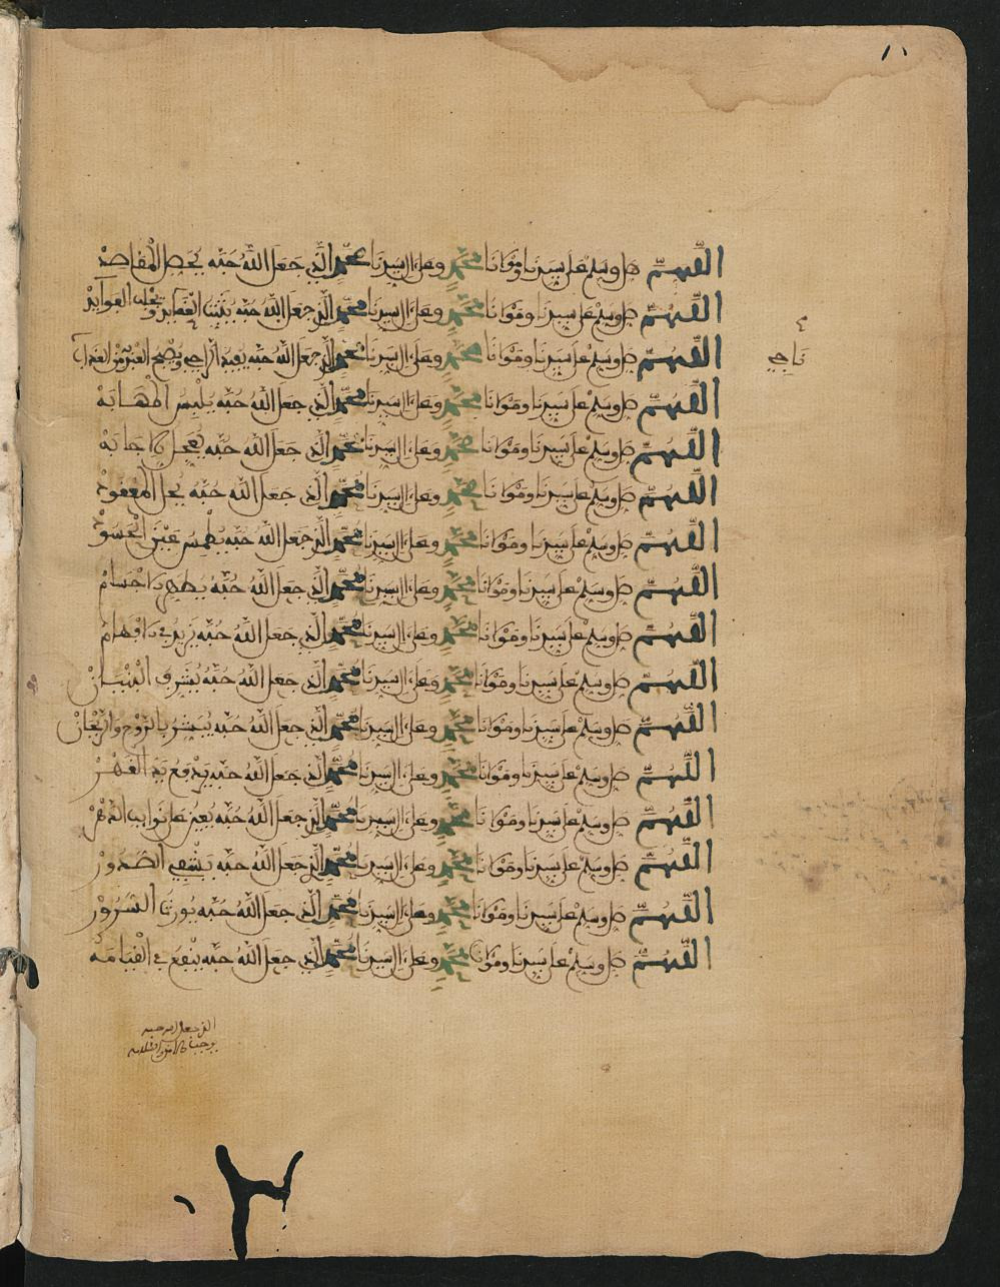 ١٨
اللَّهُمَّ صَلِّ وسَلِّمْ عَلَى سَيِّدِنَا ومَوْلَانَا مُحَمَّدٍ وعَلَى ءَالِ سَيِّدِنَا مُحَمَّدٍ الَّذِي جَعَلَ اللَّهُ حُبَّهُ يُحَصِّلُ الْمَقَاصِدْ
اللَّهُمَّ صَلِّ وسَلِّمْ عَلَى سَيِّدِنَا ومَوْلَانَا مُحَمَّدٍ وعَلَى ءَالِ سَيِّدِنَا مُحَمَّدٍ الَّذِي جَعَلَ اللَّهُ حُبَّهُ يُثَبِّتُ الْعَقَائِدْ الْفَوَائِدْ
اللَّهُمَّ صَلِّ وسَلِّمْ عَلَى سَيِّدِنَا ومَوْلَانَا مُحَمَّدٍ وعَلَى ءَالِ سَيِّدِنَا مُحَمَّدٍ الَّذِي جَعَلَ اللَّهُ حُبَّهُ
نَاجِي
اللَّهُمَّ صَلِّ وسَلِّمْ عَلَى سَيِّدِنَا ومَوْلَانَا مُحَمَّدٍ وعَلَى ءَالِ سَيِّدِنَا مُحَمَّدٍ الَّذِي جَعَلَ اللَّهُ حُبَّهُ يُلْبِسُ الْمَهَابَهْ
اللَّهُمَّ صَلِّ وسَلِّمْ عَلَى سَيِّدِنَا ومَوْلَانَا مُحَمَّدٍ وعَلَى ءَالِ سَيِّدِنَا مُحَمَّدٍ الَّذِي جَعَلَ اللَّهُ حُبَّهُ يُعَجِّلُ الْإِجَابَهْ
اللَّهُمَّ صَلِّ وسَلِّمْ عَلَى سَيِّدِنَا ومَوْلَانَا مُحَمَّدٍ وعَلَى ءَالِ سَيِّدِنَا مُحَمَّدٍ الَّذِي جَعَلَ اللَّهُ حُبَّهُ يَحُلُّ الْمَعْقُودْ
اللَّهُمَّ صَلِّ وسَلِّمْ عَلَى سَيِّدِنَا ومَوْلَانَا مُحَمَّدٍ وعَلَى ءَالِ سَيِّدِنَا مُحَمَّدٍ الَّذِي جَعَلَ اللَّهُ حُبَّهُ يَطْمِسُ عَيْنَ الْحَسُودْ
اللَّهُمَّ صَلِّ وسَلِّمْ عَلَى سَيِّدِنَا ومَوْلَانَا مُحَمَّدٍ وعَلَى ءَالِ سَيِّدِنَا مُحَمَّدٍ الَّذِي جَعَلَ اللَّهُ حُبَّهُ الْأَجْسَامْ
اللَّهُمَّ صَلِّ وسَلِّمْ عَلَى سَيِّدِنَا ومَوْلَانَا مُحَمَّدٍ وعَلَى ءَالِ سَيِّدِنَا مُحَمَّدٍ الَّذِي جَعَلَ اللَّهُ حُبَّهُ يَزِيدُ فِي الْأَفْهَامْ
اللَّهُمَّ صَلِّ وسَلِّمْ عَلَى سَيِّدِنَا ومَوْلَانَا مُحَمَّدٍ وعَلَى ءَالِ سَيِّدِنَا مُحَمَّدٍ الَّذِي جَعَلَ اللَّهُ حُبَّهُ يُشَرِّفُ الْبُنْيَانْ
اللَّهُمَّ صَلِّ وسَلِّمْ عَلَى سَيِّدِنَا ومَوْلَانَا مُحَمَّدٍ وعَلَى ءَالِ سَيِّدِنَا مُحَمَّدٍ الَّذِي جَعَلَ اللَّهُ حُبَّهُ يُبَشِّرُ بِالرَّوْحِ وَالرَّيْحَانْ
اللَّهُمَّ صَلِّ وسَلِّمْ عَلَى سَيِّدِنَا ومَوْلَانَا مُحَمَّدٍ وعَلَى ءَالِ سَيِّدِنَا مُحَمَّدٍ الَّذِي جَعَلَ اللَّهُ حُبَّهُ يَدْفَعُ يَدَ الْقَهْرْ
اللَّهُمَّ صَلِّ وسَلِّمْ عَلَى سَيِّدِنَا ومَوْلَانَا مُحَمَّدٍ وعَلَى ءَالِ سَيِّدِنَا مُحَمَّدٍ الَّذِي جَعَلَ اللَّهُ حُبَّهُ يُعِينُ عَلَى نَوَائِبِ الدَّهْرْ
اللَّهُمَّ صَلِّ وسَلِّمْ عَلَى سَيِّدِنَا ومَوْلَانَا مُحَمَّدٍ وعَلَى ءَالِ سَيِّدِنَا مُحَمَّدٍ الَّذِي جَعَلَ اللَّهُ حُبَّهُ يَشْفِي الصُّدُورْ
اللَّهُمَّ صَلِّ وسَلِّمْ عَلَى سَيِّدِنَا ومَوْلَانَا مُحَمَّدٍ وعَلَى ءَالِ سَيِّدِنَا مُحَمَّدٍ الَّذِي جَعَلَ اللَّهُ حُبَّهُ يُورِثُ السُّرُورْ
اللَّهُمَّ صَلِّ وسَلِّمْ عَلَى سَيِّدِنَا ومَوْلَانَا مُحَمَّدٍ وعَلَى ءَالِ سَيِّدِنَا مُحَمَّدٍ الَّذِي جَعَلَ اللَّهُ حُبَّهُ يَنْفَعُ فِي الْقِيَامَهْ
الذي جعل الله حبه